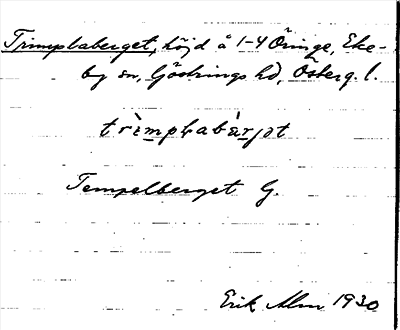 Trimplaberget, höjd å 1-4 Öringe, Eke-
by sn, Göstrings hd, Österg. l.
trìmplabàrjət
Tempelberget G.
Erik Alm 1930